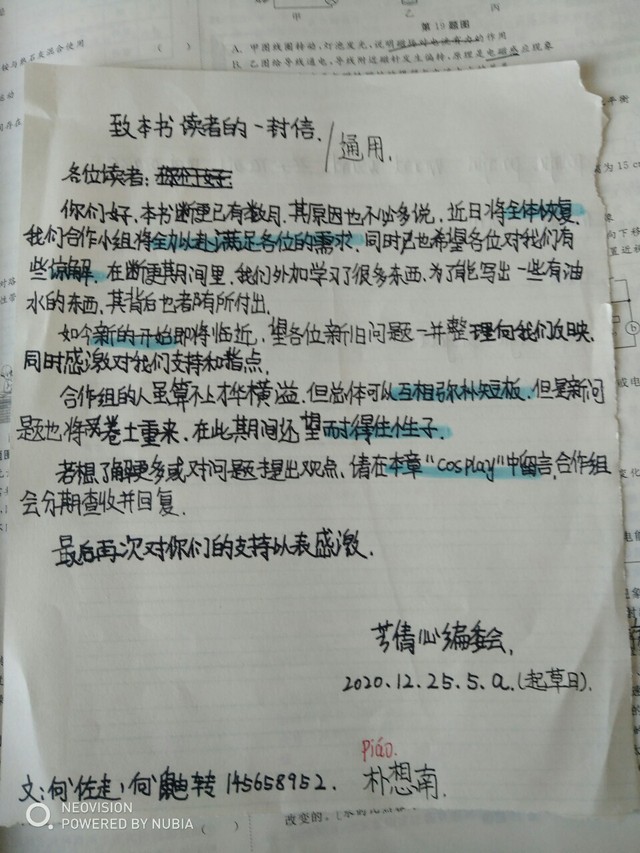 第19题图
A. 甲图线圈转动,灯泡发光,说明磁场对电流有力的作用
B. 乙图给导线通电,导线附近磁针发生偏转,原理是电磁感应现象
致本书读者的一封信. / 通用.
各位读者:
你们好,本书断更已有数月,其原因也不必多说,近日将全体恢复.
我们合作小组将全力以赴满足各位的需求.同时也希望各位对我们有
些谅解.在断更期间里,我们外加学习了很多东西,为了能写出一些有油
水的东西,其背后也都有所付出.
如今新的开始即将临近,望各位新旧问题一并整理向我们反映,
同时感激对我们支持和指点.
合作组的人虽算不上才华横溢,但总体可以互相弥补短板.但是新问
题也将卷土重来,在此期间还望耐得住性子.
若想了解更多或对问题提出观点,请在本章"cosplay"中留言,合作组
会分期查收并回复.
最后再次对你们的支持以表感激.
兮倩心编委会.
2020.12.25.5.a.(起草日).
piáo.
文:何佐走,何 转 145658952. 朴想南.
NEOVISION
POWERED BY NUBIA
改变的.